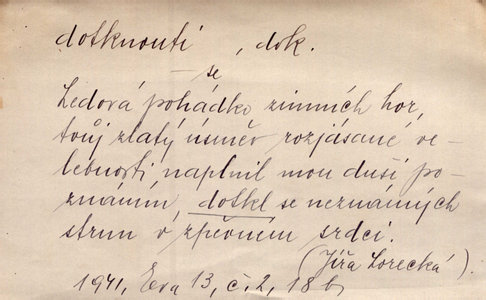 dotknouti, dok.
se
Ledová pohádko zimních hor,
tvůj zlatý úsměv rozjásané ve-
lebnosti naplnil mou duši po-
znáním, dotkl se neznámých
strun v zpěvném srdci.
(Jiřa Lorecká).
1941, Eva 13, č. 2, 18 b